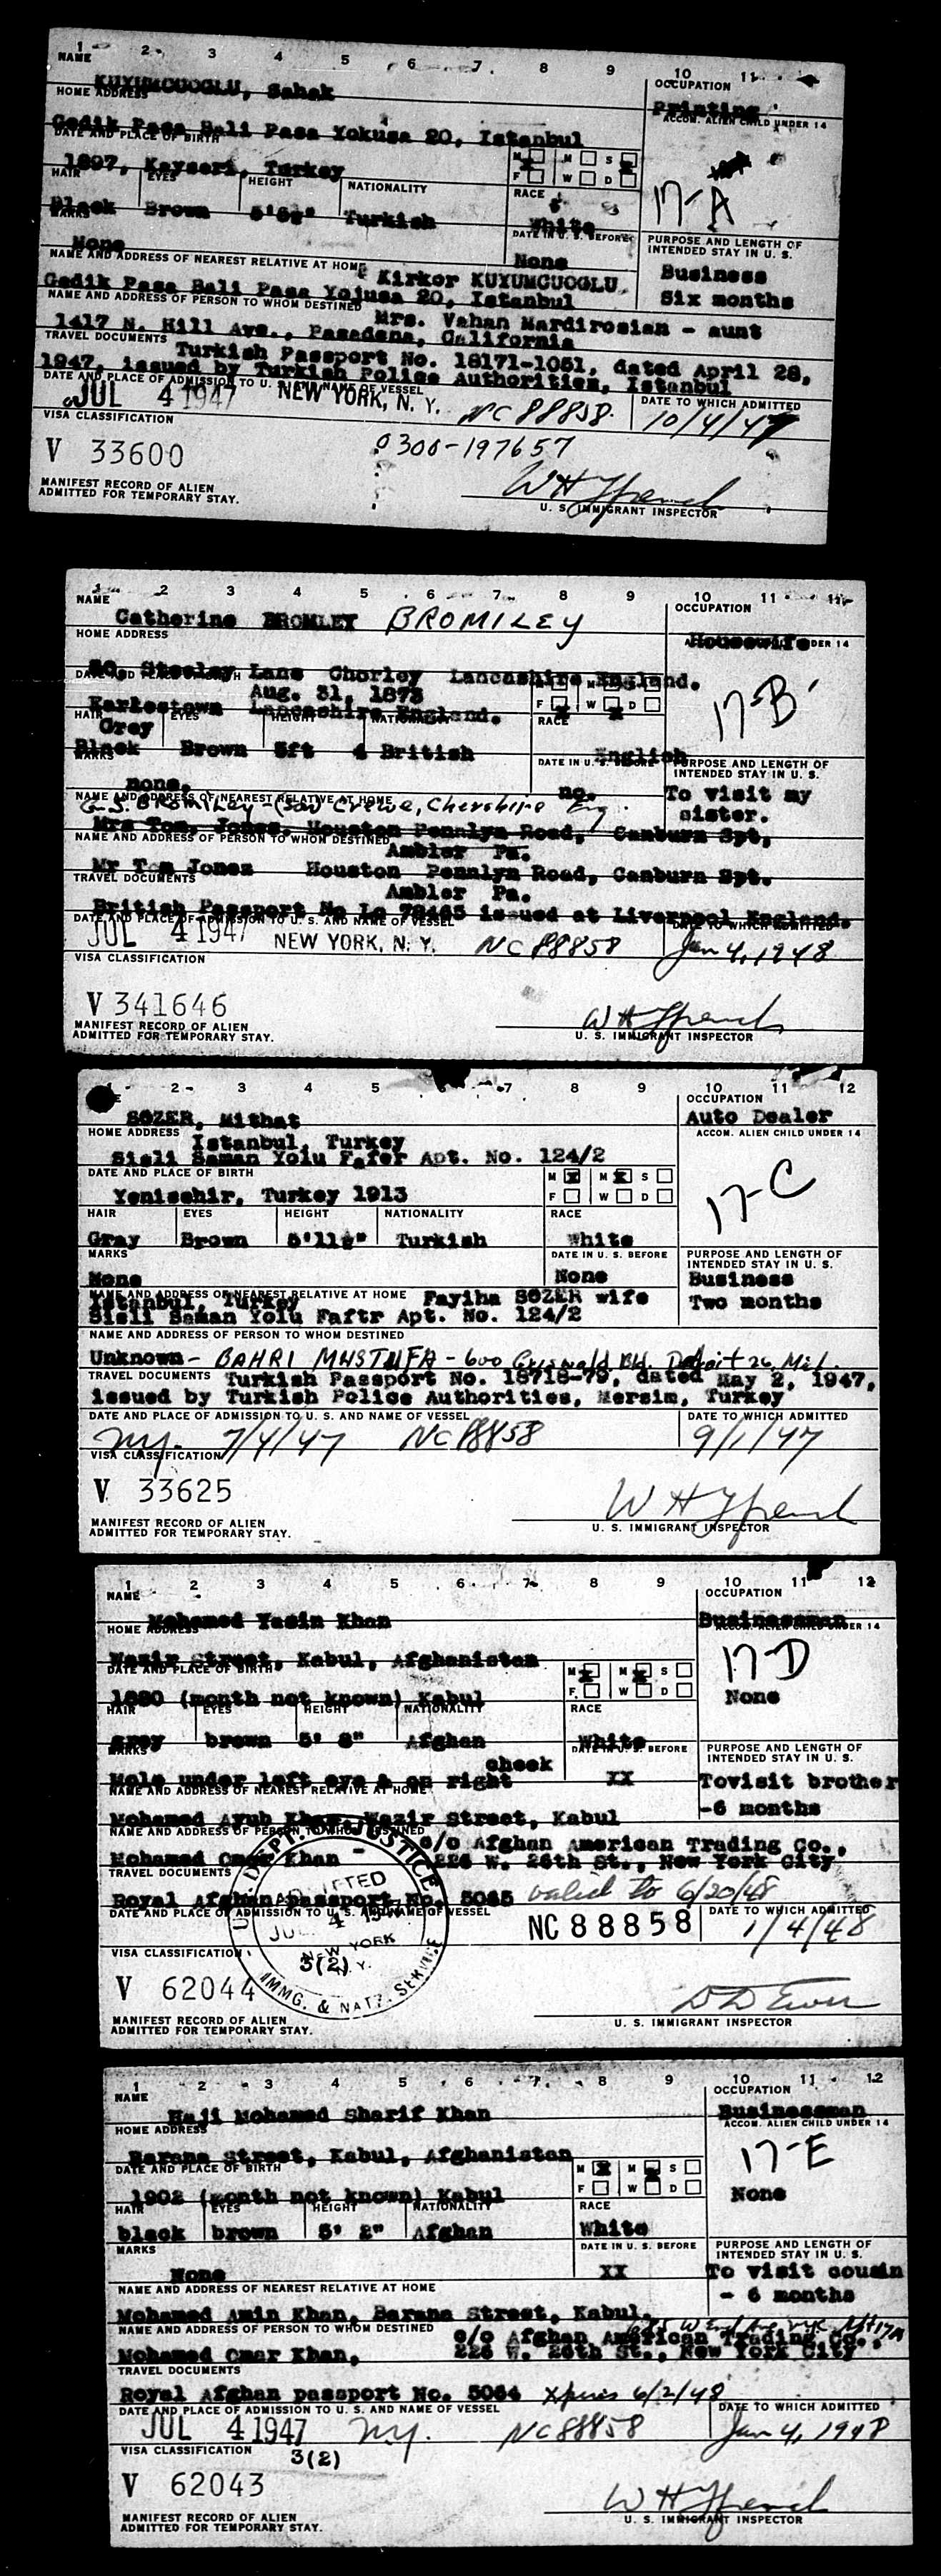 1 2 3 4 5 6 7 8 9 10 11
NAME OCCUPATION
KUYUMCUOGLU, Sahak Printing
HOME ADDRESS ACCOM. ALIEN CHILD UNDER 14
Gedik Pasa Bali Pasa Yokusa 20, Istanbul
DATE AND PLACE OF BIRTH
1897, Kayseri, Turkey M M S
F W D 17-A
HAIR EYES HEIGHT NATIONALITY RACE
Black Brown Turkish White
MARKS DATE IN U. S. BEFORE PURPOSE AND LENGTH OF INTENDED STAY IN U. S.
None None Business
NAME AND ADDRESS OF NEAREST RELATIVE AT HOME Kirkor KUYUMCUOGLU Six months
Gedik Pasa Bali Pasa Yojusa 20, Istanbul
NAME AND ADDRESS OF PERSON TO WHOM DESTINED Mrs. Vahan Mardirosian - aunt
1417 N. Hill Ave., Pasadena, California
TRAVEL DOCUMENTS Turkish Passport No. 18171-1051, dated April 28,
1947, issued by Turkish Police Authorities, Istanbul
DATE AND PLACE OF ADMISSION TO U. S. AND NAME OF VESSEL DATE TO WHICH ADMITTED
JUL 4 1947 NEW YORK, N. Y. NC 88858 10/4/47
VISA CLASSIFICATION
V 33600 0300-197657
MANIFEST RECORD OF ALIEN
ADMITTED FOR TEMPORARY STAY. U. S. IMMIGRANT INSPECTOR
1 2 3 4 5 6 7 8 9 10 11 12
NAME OCCUPATION
Catherine BROMLEY BROMILEY Housewife
HOME ADDRESS
Steeley Lane Chorley Lancashire England.
DATE AND PLACE OF BIRTH
Aug. 31, 1873
Earlestown Lancashire England. F W D 17-B
HAIR EYES HEIGHT NATIONALITY RACE
Grey
Black Brown 5ft 4 British English
MARKS DATE IN U. S. BEFORE PURPOSE AND LENGTH OF INTENDED STAY IN U. S.
none. no. To visit my sister.
NAME AND ADDRESS OF NEAREST RELATIVE AT HOME
G. S. BROMILEY (son) Crewe, Cheshire Eng.
Mrs Tom, Jones. Houston Pennlyn Road, Canburn Spt,
NAME AND ADDRESS OF PERSON TO WHOM DESTINED Ambler Pa.
Mr Tom Jones Houston Pennlyn Road, Canburn Spt.
TRAVEL DOCUMENTS Ambler Pa.
British Passport No Lo 78465 issued at Liverpool England.
DATE AND PLACE OF ADMISSION TO U. S. AND NAME OF VESSEL DATE TO WHICH ADMITTED
JUL 4 1947 NEW YORK, N. Y. NC 88858 Jan 4, 1948
VISA CLASSIFICATION
V 341646
MANIFEST RECORD OF ALIEN
ADMITTED FOR TEMPORARY STAY. U. S. IMMIGRANT INSPECTOR
1 2 3 4 5 6 7 8 9 10 11 12
OCCUPATION
SOZER, Mithat Auto Dealer
HOME ADDRESS ACCOM. ALIEN CHILD UNDER 14
Istanbul, Turkey
Sisli Saman Yolu Fafer Apt. No. 124/2
DATE AND PLACE OF BIRTH M M S
Yenisehir, Turkey 1913 F W D 17-C
HAIR EYES HEIGHT NATIONALITY RACE
Gray Brown 5'11½" Turkish White
MARKS DATE IN U. S. BEFORE PURPOSE AND LENGTH OF INTENDED STAY IN U. S.
None None Business
NAME AND ADDRESS OF NEAREST RELATIVE AT HOME Two months
Istanbul, Turkey Fayiha SOZER wife
Sisli Saman Yolu Faftr Apt. No. 124/2
NAME AND ADDRESS OF PERSON TO WHOM DESTINED
Unknown - BAHRI MUSTUFA - 600 Griswald Bld. Detroit 26, Mich.
TRAVEL DOCUMENTS Turkish Passport No. 18718-79, dated May 2, 1947,
issued by Turkish Police Authorities, Mersim, Turkey
DATE AND PLACE OF ADMISSION TO U. S. AND NAME OF VESSEL DATE TO WHICH ADMITTED
N.Y. 7/4/47 NC 88858 9/1/47
VISA CLASSIFICATION
V 33625
MANIFEST RECORD OF ALIEN
ADMITTED FOR TEMPORARY STAY. U. S. IMMIGRANT INSPECTOR
1 2 3 4 5 6 7 8 9 10 11 12
NAME OCCUPATION
Mohamed Yasin Khan Businessman
HOME ADDRESS ACCOM. ALIEN CHILD UNDER 14
Wazir Street, Kabul, Afghanistan 17-D
DATE AND PLACE OF BIRTH M M S
1880 (month not known) Kabul F W D None
HAIR EYES HEIGHT NATIONALITY RACE
grey brown 5' 8" Afghan White
MARKS DATE IN U. S. BEFORE PURPOSE AND LENGTH OF INTENDED STAY IN U. S.
cheek
Mole under left eye & on right XX Tovisit brother
NAME AND ADDRESS OF NEAREST RELATIVE AT HOME -6 months
Mohamed Ayub Khan, Wazir Street, Kabul
NAME AND ADDRESS OF PERSON TO WHOM DESTINED c/o Afghan American Trading Co.,
Mohamed Omar Khan - 226 W. 26th St., New York City
TRAVEL DOCUMENTS
Royal Afghan passport No. 5065 valid to 6/20/48
DATE AND PLACE OF ADMISSION TO U. S. AND NAME OF VESSEL DATE TO WHICH ADMITTED
NC 88858 1/4/48
U. S. DEPT. OF JUSTICE
ADMITTED
JUL 4 1947
NEW YORK
N. Y.
3(2)
IMMG. & NATZ. SERVICE
VISA CLASSIFICATION
V 62044
MANIFEST RECORD OF ALIEN
ADMITTED FOR TEMPORARY STAY. U. S. IMMIGRANT INSPECTOR
1 2 3 4 5 6 7 8 9 10 11 12
NAME OCCUPATION
Haji Mohamed Sharif Khan Businessman
HOME ADDRESS ACCOM. ALIEN CHILD UNDER 14
Barana Street, Kabul, Afghanistan 17-E
DATE AND PLACE OF BIRTH M M S
1902 (month not known) Kabul F W D None
HAIR EYES HEIGHT NATIONALITY RACE
black brown 5' 2" Afghan White
MARKS DATE IN U. S. BEFORE PURPOSE AND LENGTH OF INTENDED STAY IN U. S.
None XX To visit cousin
NAME AND ADDRESS OF NEAREST RELATIVE AT HOME - 6 months
Mohamed Amin Khan, Barana Street, Kabul.
NAME AND ADDRESS OF PERSON TO WHOM DESTINED c/o Afghan American Trading Co.,
Mohamed Omar Khan, 226 W. 26th St., New York City
TRAVEL DOCUMENTS
Royal Afghan passport No. 5064 Xpires 6/2/48
DATE AND PLACE OF ADMISSION TO U. S. AND NAME OF VESSEL DATE TO WHICH ADMITTED
JUL 4 1947 N.Y. NC 88858 Jan 4, 1948
VISA CLASSIFICATION 3(2)
V 62043
MANIFEST RECORD OF ALIEN
ADMITTED FOR TEMPORARY STAY. U. S. IMMIGRANT INSPECTOR